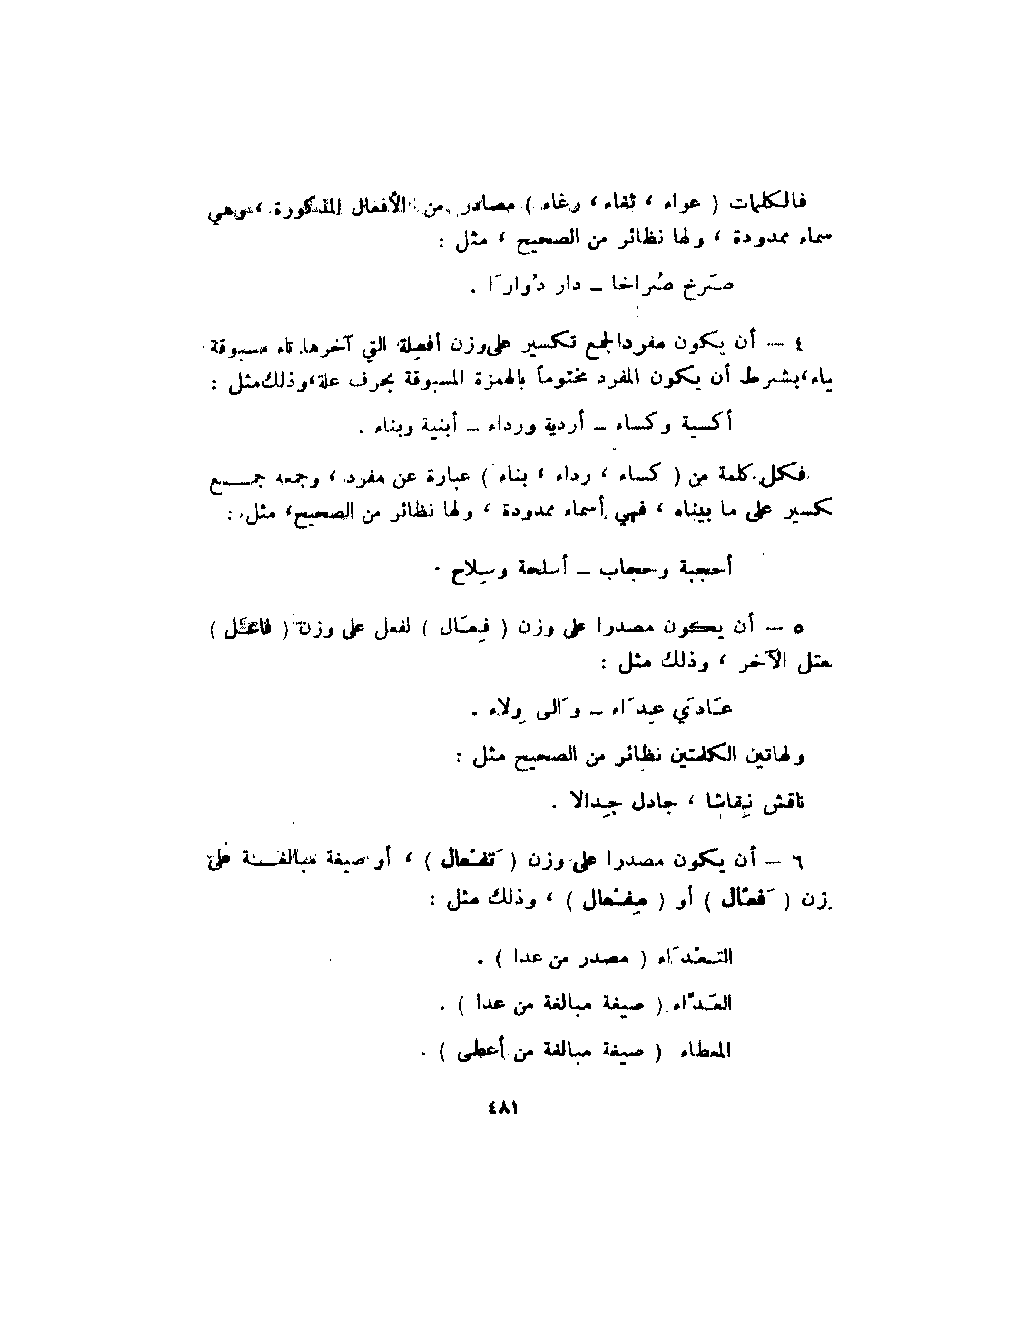 فالكلمات ( عواء ، ثغاء ، رغاء ) مصادر من الأفعال المذكورة ، وهي
سماء ممدودة ، ولها نظائر من الصحيح ، مثل :
صَرخ صُراخا – دار دُوارَا .
٤ – أن يكون مفردا لجمع تكسير على وزن أفعِلة التي آخرها تاء مسبوقة
ياء ، بشرط أن يكون المفرد مختوماً بالهمزة المسبوقة بحرف علة ، وذلك مثل :
أكسية وكساء – أردية ورداء – أبنية وبناء .
فكل كلمة من ( كساء ، رداء ، بناء ) عبارة عن مفرد ، وجمعه جمع
كسير على ما بيناه ، فهي أسماء ممدودة ، ولها نظائر من الصحيح ، مثل :
أحجبة وحجاب – أسلحة وسِلاح .
٥ – أن يكون مصدرا على وزن ( فِعَال ) لفعل على وزن ( فاعَل )
معتل الآخر ، وذلك مثل :
عَادَي عِدَاء – وَالى وِلاء .
ولهاتين الكلمتين نظائر من الصحيح مثل :
ناقش نِقاشا ، جادل جِدالا .
٦ – أن يكون مصدرا على وزن ( تَفْعال ) ، أو صيغة مبالغة على
وزن ( فَعّال ) أو ( مِفْعال ) ، وذلك مثل :
التَعْدَاء ( مصدر من عدا ) .
العَدّاء ( صيغة مبالغة من عدا ) .
المعطاء ( صيغة مبالغة من أعطى ) .
٤٨١